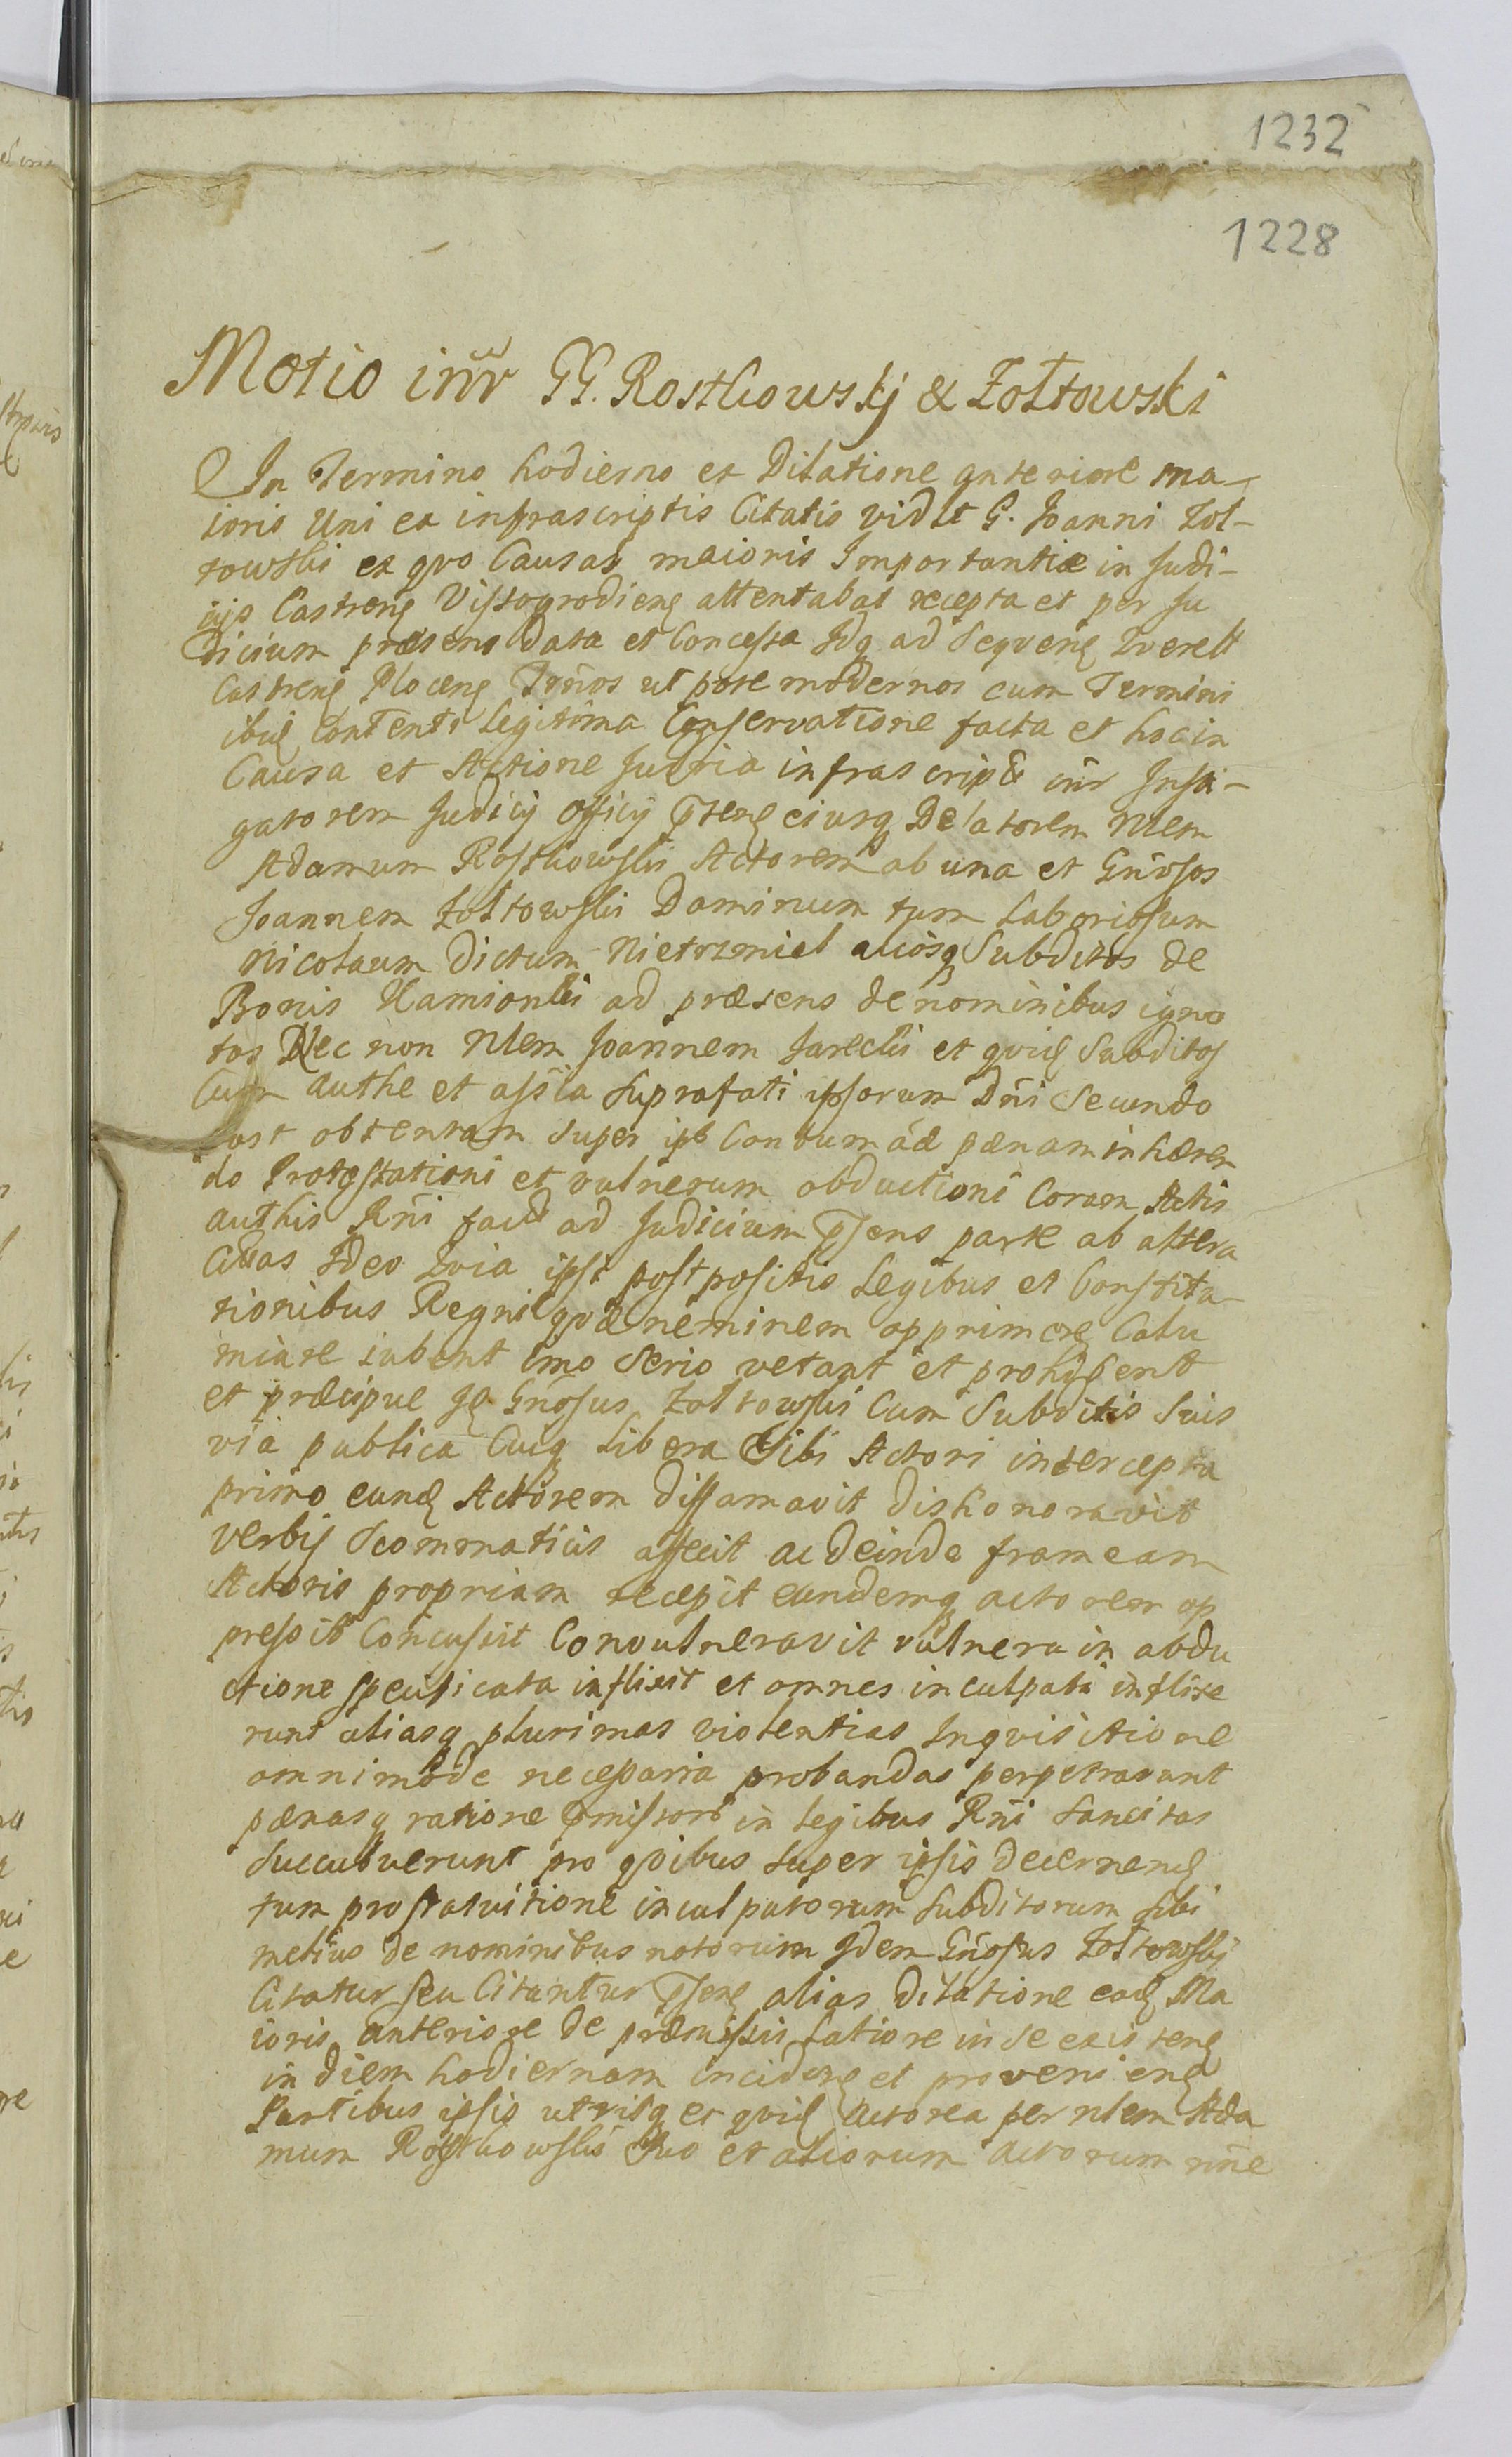 1232
1228
Motio inr̃ GG. Rostkowskj & Zołtowski
In Termino hodierno ex Dilatione anteriore ma-
ioris Uni ex infrascriptis Citatis vidlt G. Joanni Zoł-
towski ex qvo Causas maioris Importantiæ in Judi-
cijs Castreng Vissogrodieng attentabat recepta et per Ju
dicium præsens data et Concessa Idq ad Seqveng Qverell
Castreng Ploceng Trños ut pote modernos cum Termini
ibus Contenti Legitima Conservatione facta et hoc in
Causa et Actione Juria infrascripta inr̃ Insti-
gatorem Judicij Officij Pseng eiusq Delatorem Nlem
Adamum Rostkowski Actorem ab una et Gñosos
Joannem Zołtowski Dominum tum Laboriosum
Nicolaum dictum Nietrzmiel aliosq Subditos de
Bonis Kamionki ad præsens de nominibus igno
tos Nec non Nlem Joannem Jarecki et qvid Subditos
Cum Authe et assla Suprafati ipsorum Dñi Secundo
post obtentam super ips Contumaæ pænam inhæren
do Protestationi et vulnerum obductioni Coram Actis
authis Rñi fact ad Judicium Psens parte ab altera
Citas Ideo Qvia ipsi postpositis Legibus et Constitu-
tionibus Regni qvæ neminem opprimere Calu
miare iubent imo Serio vetant et prohibent
et præcipue Id Gñosus Zołtowski Cum Subditis Suis
via publica Cuiq libera Sibi Actori intercepta
primo eund Actorem diffamavit dishonoravit
verbis Scommaticis affecit ac deinde frameam
Actoris propriam recepit eundemq actorem op
pressit Concussit Convulneravit vulnera in obdu
ctione specificata inflixit et omnes inculpati inflixe
runt aliasq plurimas violentias Inqvisitione
omnimode necessaria probandas perpetrarunt
pænasq ratione Pmissorũ in legibus Rñi Sancitas
Succubuerunt pro qvibus super ipsis decernend
tum pro statuitione inculpatorum Subditorum sibi
melius de nominibus notorum Idem Gñosus Zołtowski
Citatur seu Citantur Pseng alias Dilatione ead Ma
ioris anteriore de præmissis ratione in se existeng
in diem hodiernam incideng et provenieng
Partibus ipsis utrisq et qvid Actorea per nlem Ada
mum Rostkowski Suo et aliorum actorum nñe